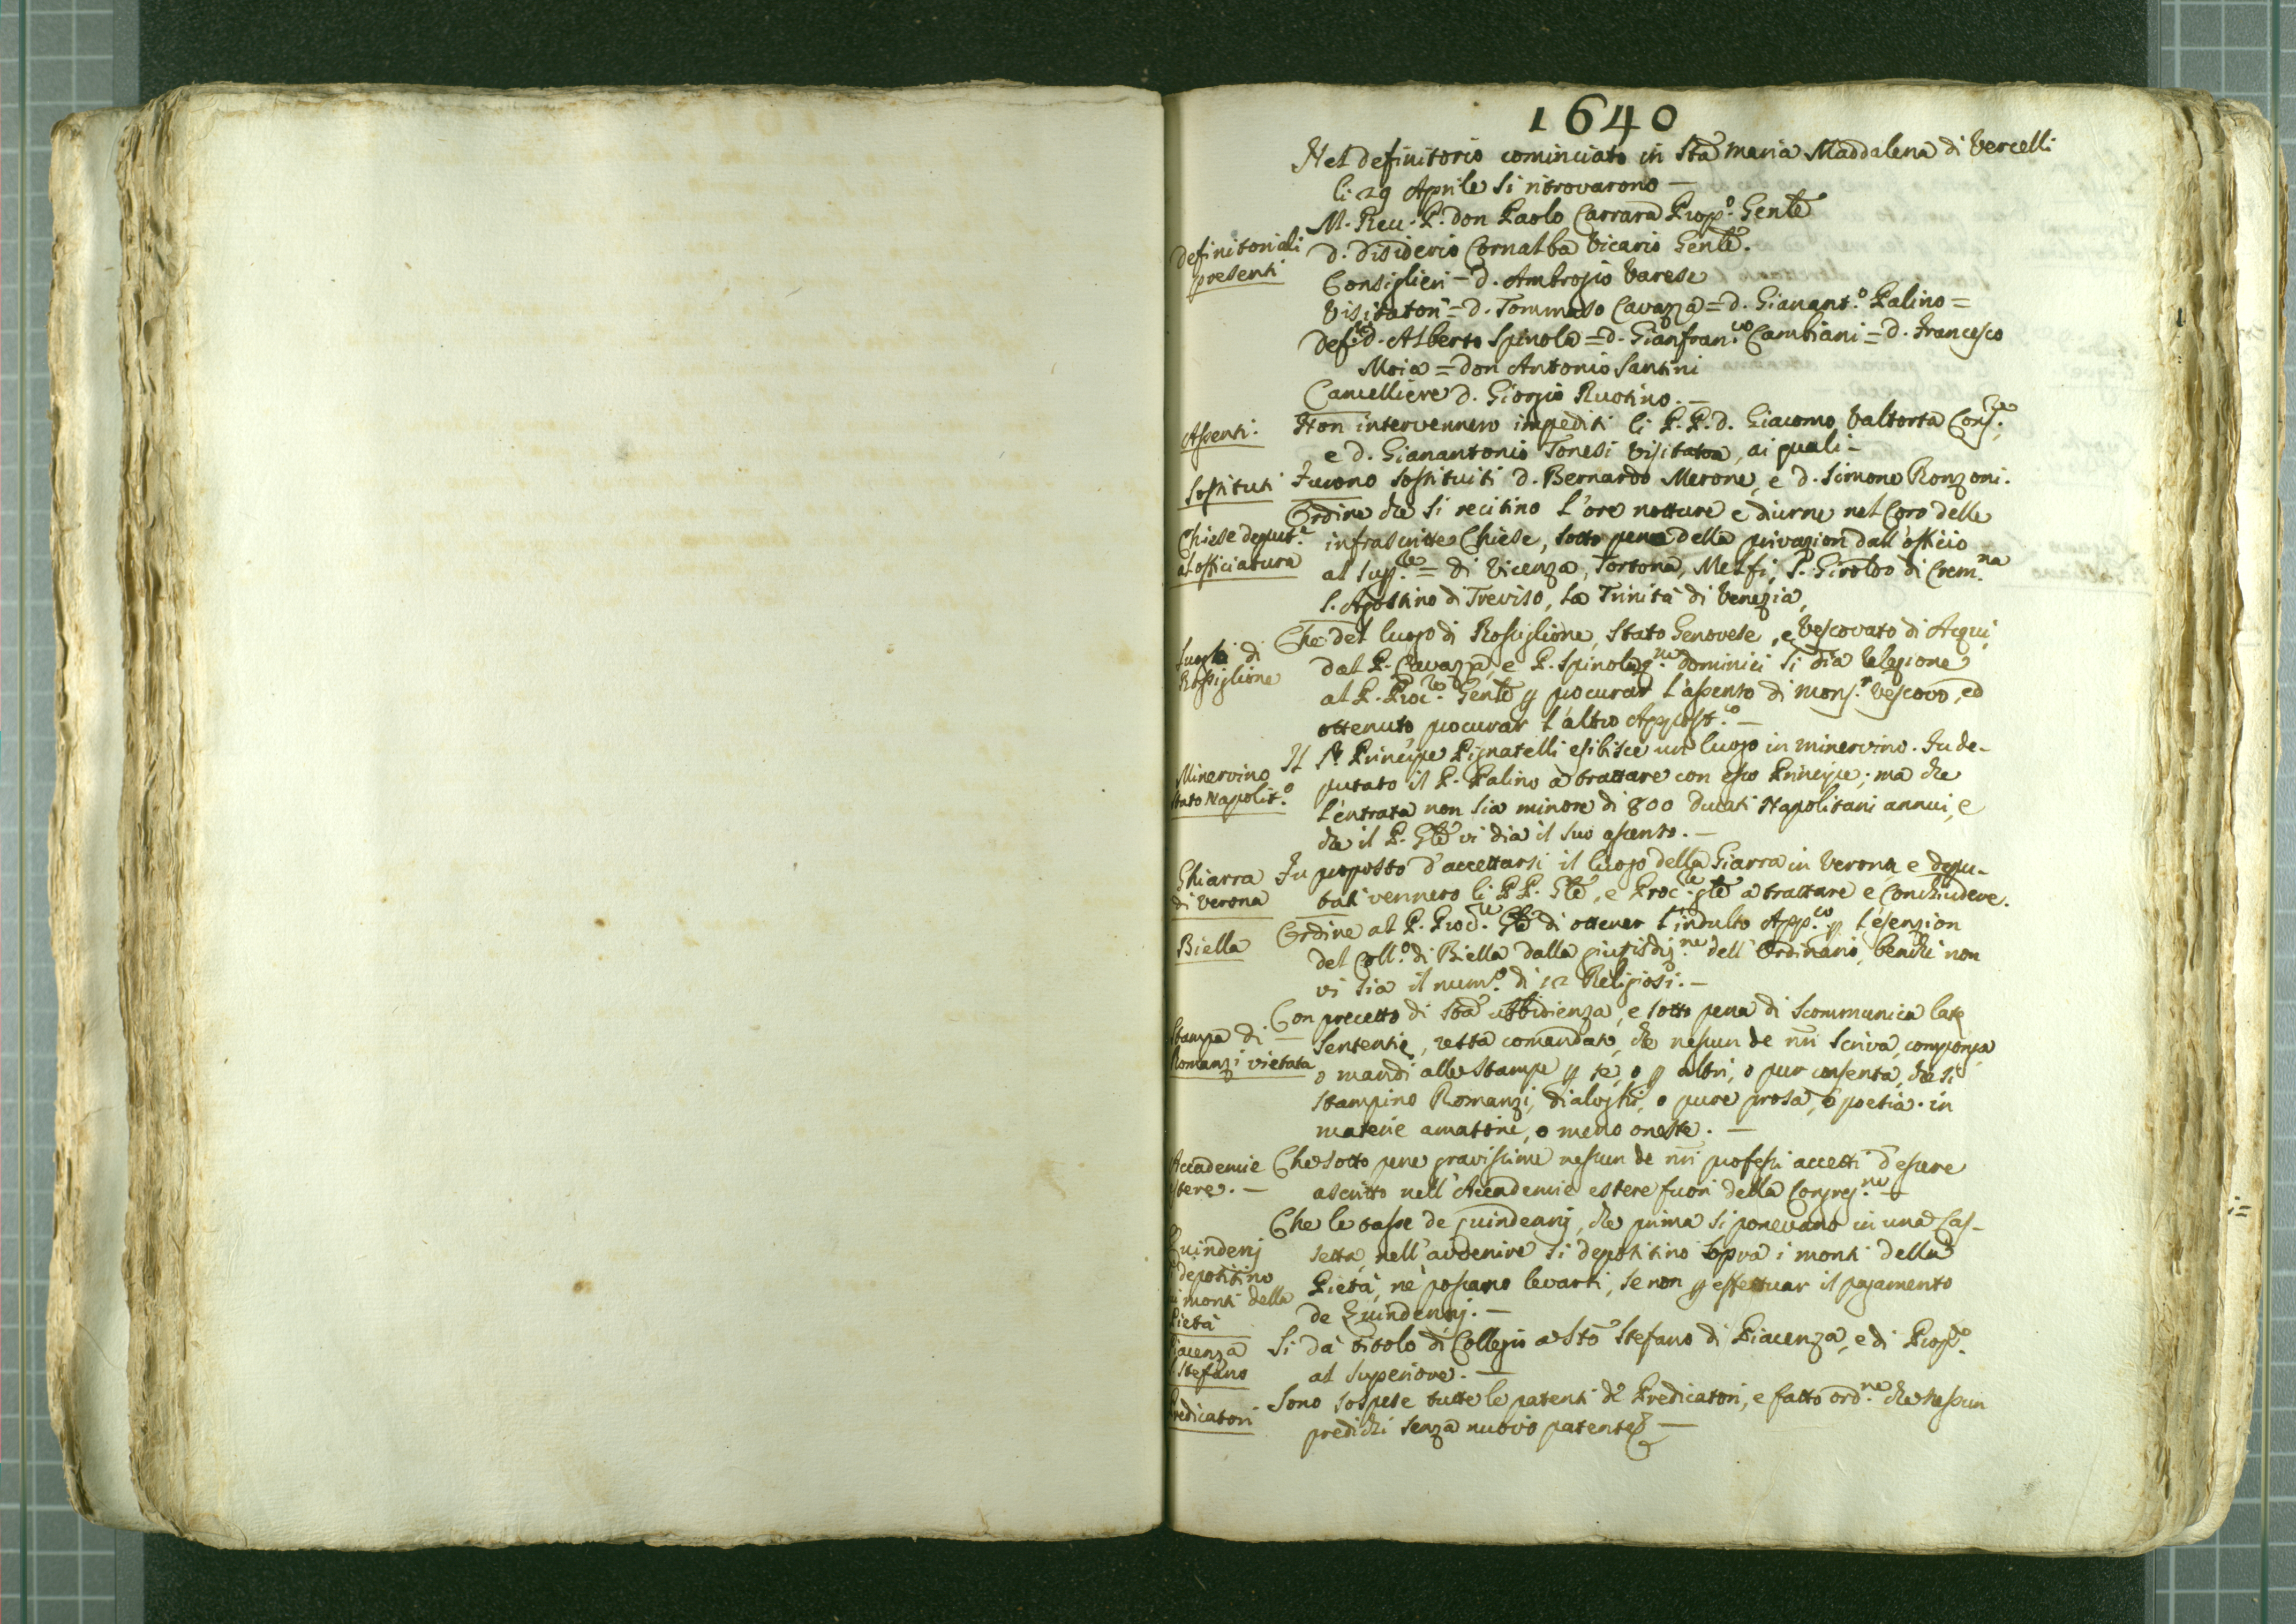 1640
Nel definitorio cominciato in Sta Maria Maddalena di Vercelli
li 29 Aprile si ritrovarono —
Definitoriali
presenti
M. Reu. P. don Paolo Carrara Prop.o Genle
D. Disiderio Cornalba Vicario Genle.
Consiglieri = d. Ambrogio Varese
Visitatori = d. Tommaso Cavazza = d. Gianant.o Palino =
Def.ri d. Alberto Spinola = d. Gianfran.co Cambiani = d. Francesco
Moia = don Antonio Santini
Cancelliere d. Giorgio Ruotino. —
Assenti.
Non intervennero impediti li P.P. d. Giacomo Valtorta Cons.re
e d. Gianantonio Tonesi Visitator, ai quali —
Sostituti
Furono sostituiti d. Bernardo Merone, e d. Simone Ronzoni.
Chiese deput.e
al officiatura
Ordine che si recitino l'ore notture e diurne nel Coro delle
infrascritte Chiese, sotto pena della privazion dall'officio
al Sup.re = di Vicenza, Tortona, Melfi, S. Giroldo di Crem.na
S. Agostino di Treviso, la Trinità di Venezia,
Luogo di
Rossiglione
Che del luogo di Rossiglione, Stato Genovese, e Vescovato di Acqui,
dal P. Cavazza, e P. Spinola q.m Dominici si dia relazione
al P. Proc.re Genle p procurar l'assenso di Mons.r Vescovo, ed
ottenuto procurar l'altro Appost.co —
Minervino
stato Napolit.o
Il Sr Principe Pignatelli esibisce un luogo in Minervino. Fu de-
putato il P. Palino a trattare con esso Principe; ma che
l'entrata non sia minore di 800 ducati Napolitani annui, e
che il P. Gle vi dia il suo assenso. —
Ghiarra
di Verona
Fu proposto d'accettarsi il luogo della Giarra in Verona, e depu-
tati vennero li PP. Gle, e Proc.re gle a trattare e conchiudere.
Biella
Ordine al P. Proc.re Gle di ottener l'indulto App.co p l'esenzion
del Coll.o di Biella dalla giurisdiz.ne dell'Ordinario, benchè non
vi sia il num.o di 12 Religiosi. —
Stampa di
Romanzi vietata
Con precetto di Sta Ubbidienza, e sotto pena di Scommunica latę
sententię, resta comandato, che nessun de nri scriva, componga
o mandi alle stampe p sè, o p altri, o pur consenta, che si
stampino Romanzi, dialoghi, o pure prosa, o poesia in
materie amatorie, o meno oneste. —
Accademie
estere. —
Che sotto pene gravissime nessun de nri professi accetti d'essere
ascritto nell'Accademie estere fuori della Congreg.ne —
Quindenj
si depositino
ai monti della
Pietà
Che le tasse de quindennj, che prima si ponevano in una Cas-
setta, nell'avvenire si depositino sopra i monti della
Pietà, nè possano levarsi, se non p effettuar il pagamento
de Quindennj. —
Piacenza
S. Stefano
Si dà titolo di Collegio a Sto Stefano di Piacenza, e di Prop.o
al Superiore. —
Predicatori
Sono sospese tutte le patenti de' Predicatori, e fatto ord.ne che nessun
predichi senza nuovo patente —